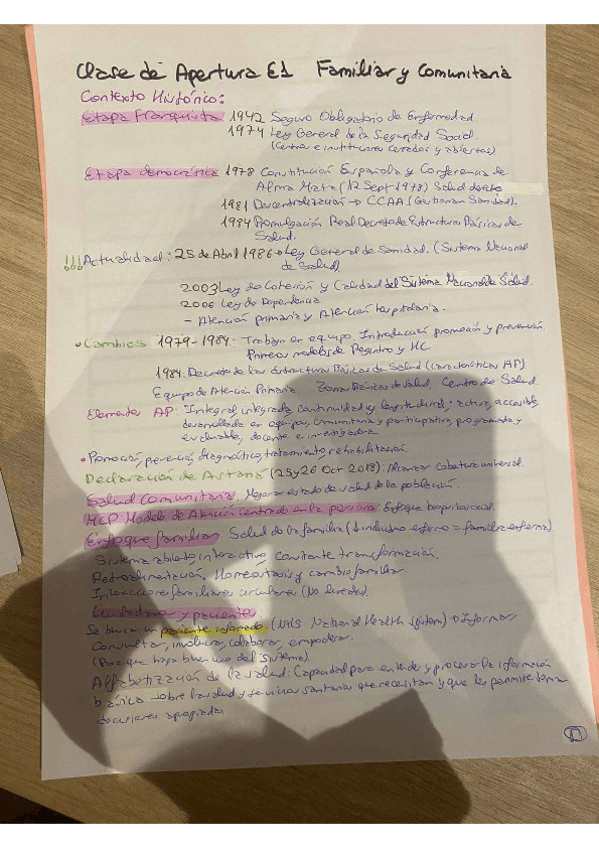 Clase de Apertura E1 Familiar y Comunitaria
Contexto Histórico:
Etapa Franquista 1942 Seguro Obligatorio de Enfermedad
1974 Ley General de la Seguridad Social.
(Centros e instituciones cerrados y abiertos)
Etapa democrática 1978 Constitución Española y Conferencia de
Alma Mata (12 Sept 1978) Salud
1981 Descentralización → CCAA (Gestionan Sanidad).
1984 Promulgación Real Decreto de Estructuras Básicas de
Salud.
!!! Actualidad: 25 de Abril 1986 → Ley General de Sanidad. (Sistema Nacional
de Salud)
2003 Ley de Cohesión y Calidad del Sistema Nacional de Salud.
2006 Ley de Dependencia
- Atención primaria y Atención hospitalaria.
• Cambios 1979-1984: Trabajo en equipo. Introducción promoción y prevención
Primeros modelos de Registro y HC
1984: Decreto de las Estructuras Básicas de Salud (Características AP).
Equipo de Atención Primaria. Zonas Básicas de Salud. Centro de Salud.
Elementos AP: Integral, integrada, continuidad y longitudinal, activa, accesible,
desarrollada en equipos, comunitaria y participativa, programada y
evaluable, docente e investigadora
• Promoción, prevención, diagnóstico, tratamiento, rehabilitación.
Declaración de Astaná (25 y 26 Oct 2018): Alcanzar cobertura universal.
Salud Comunitaria. Mejorar estado de salud de la población.
MCP Modelo de Atención Centrado en la persona: Enfoque biopsicosocial.
Enfoque familiar Salud de la familia (1 individuo enfermo = familia enferma)
Sistema abierto, interactivo, constante transformación.
Retroalimentación. Homeostasis y cambio familiar
Interacciones familiares circulares (No lineales).
Ciudadano y paciente
Se busca un paciente informado. (NHS National Health System) → Informar
Consultar, involucrar, colaborar, empoderar.
(Para que haya buen uso del Sistema).
Alfabetización de la salud: Capacidad para entender y procesar la información
básica sobre la salud y servicios sanitarios que necesitan y que les permite tomar
decisiones apropiadas